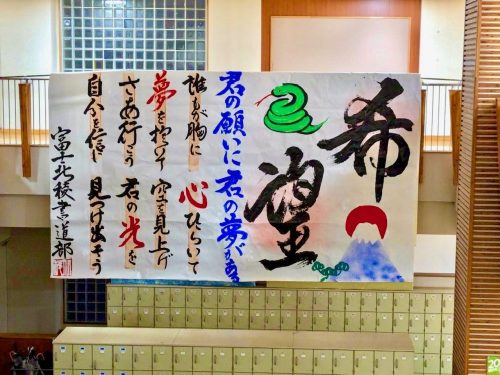 希望
君の願いに君の夢がある
誰もが胸に 心ひらいて
夢を抱いて 空を見上げ
さあ行こう 君の光を
自分を信じ 見つけ出そう
富士北稜書道部
20